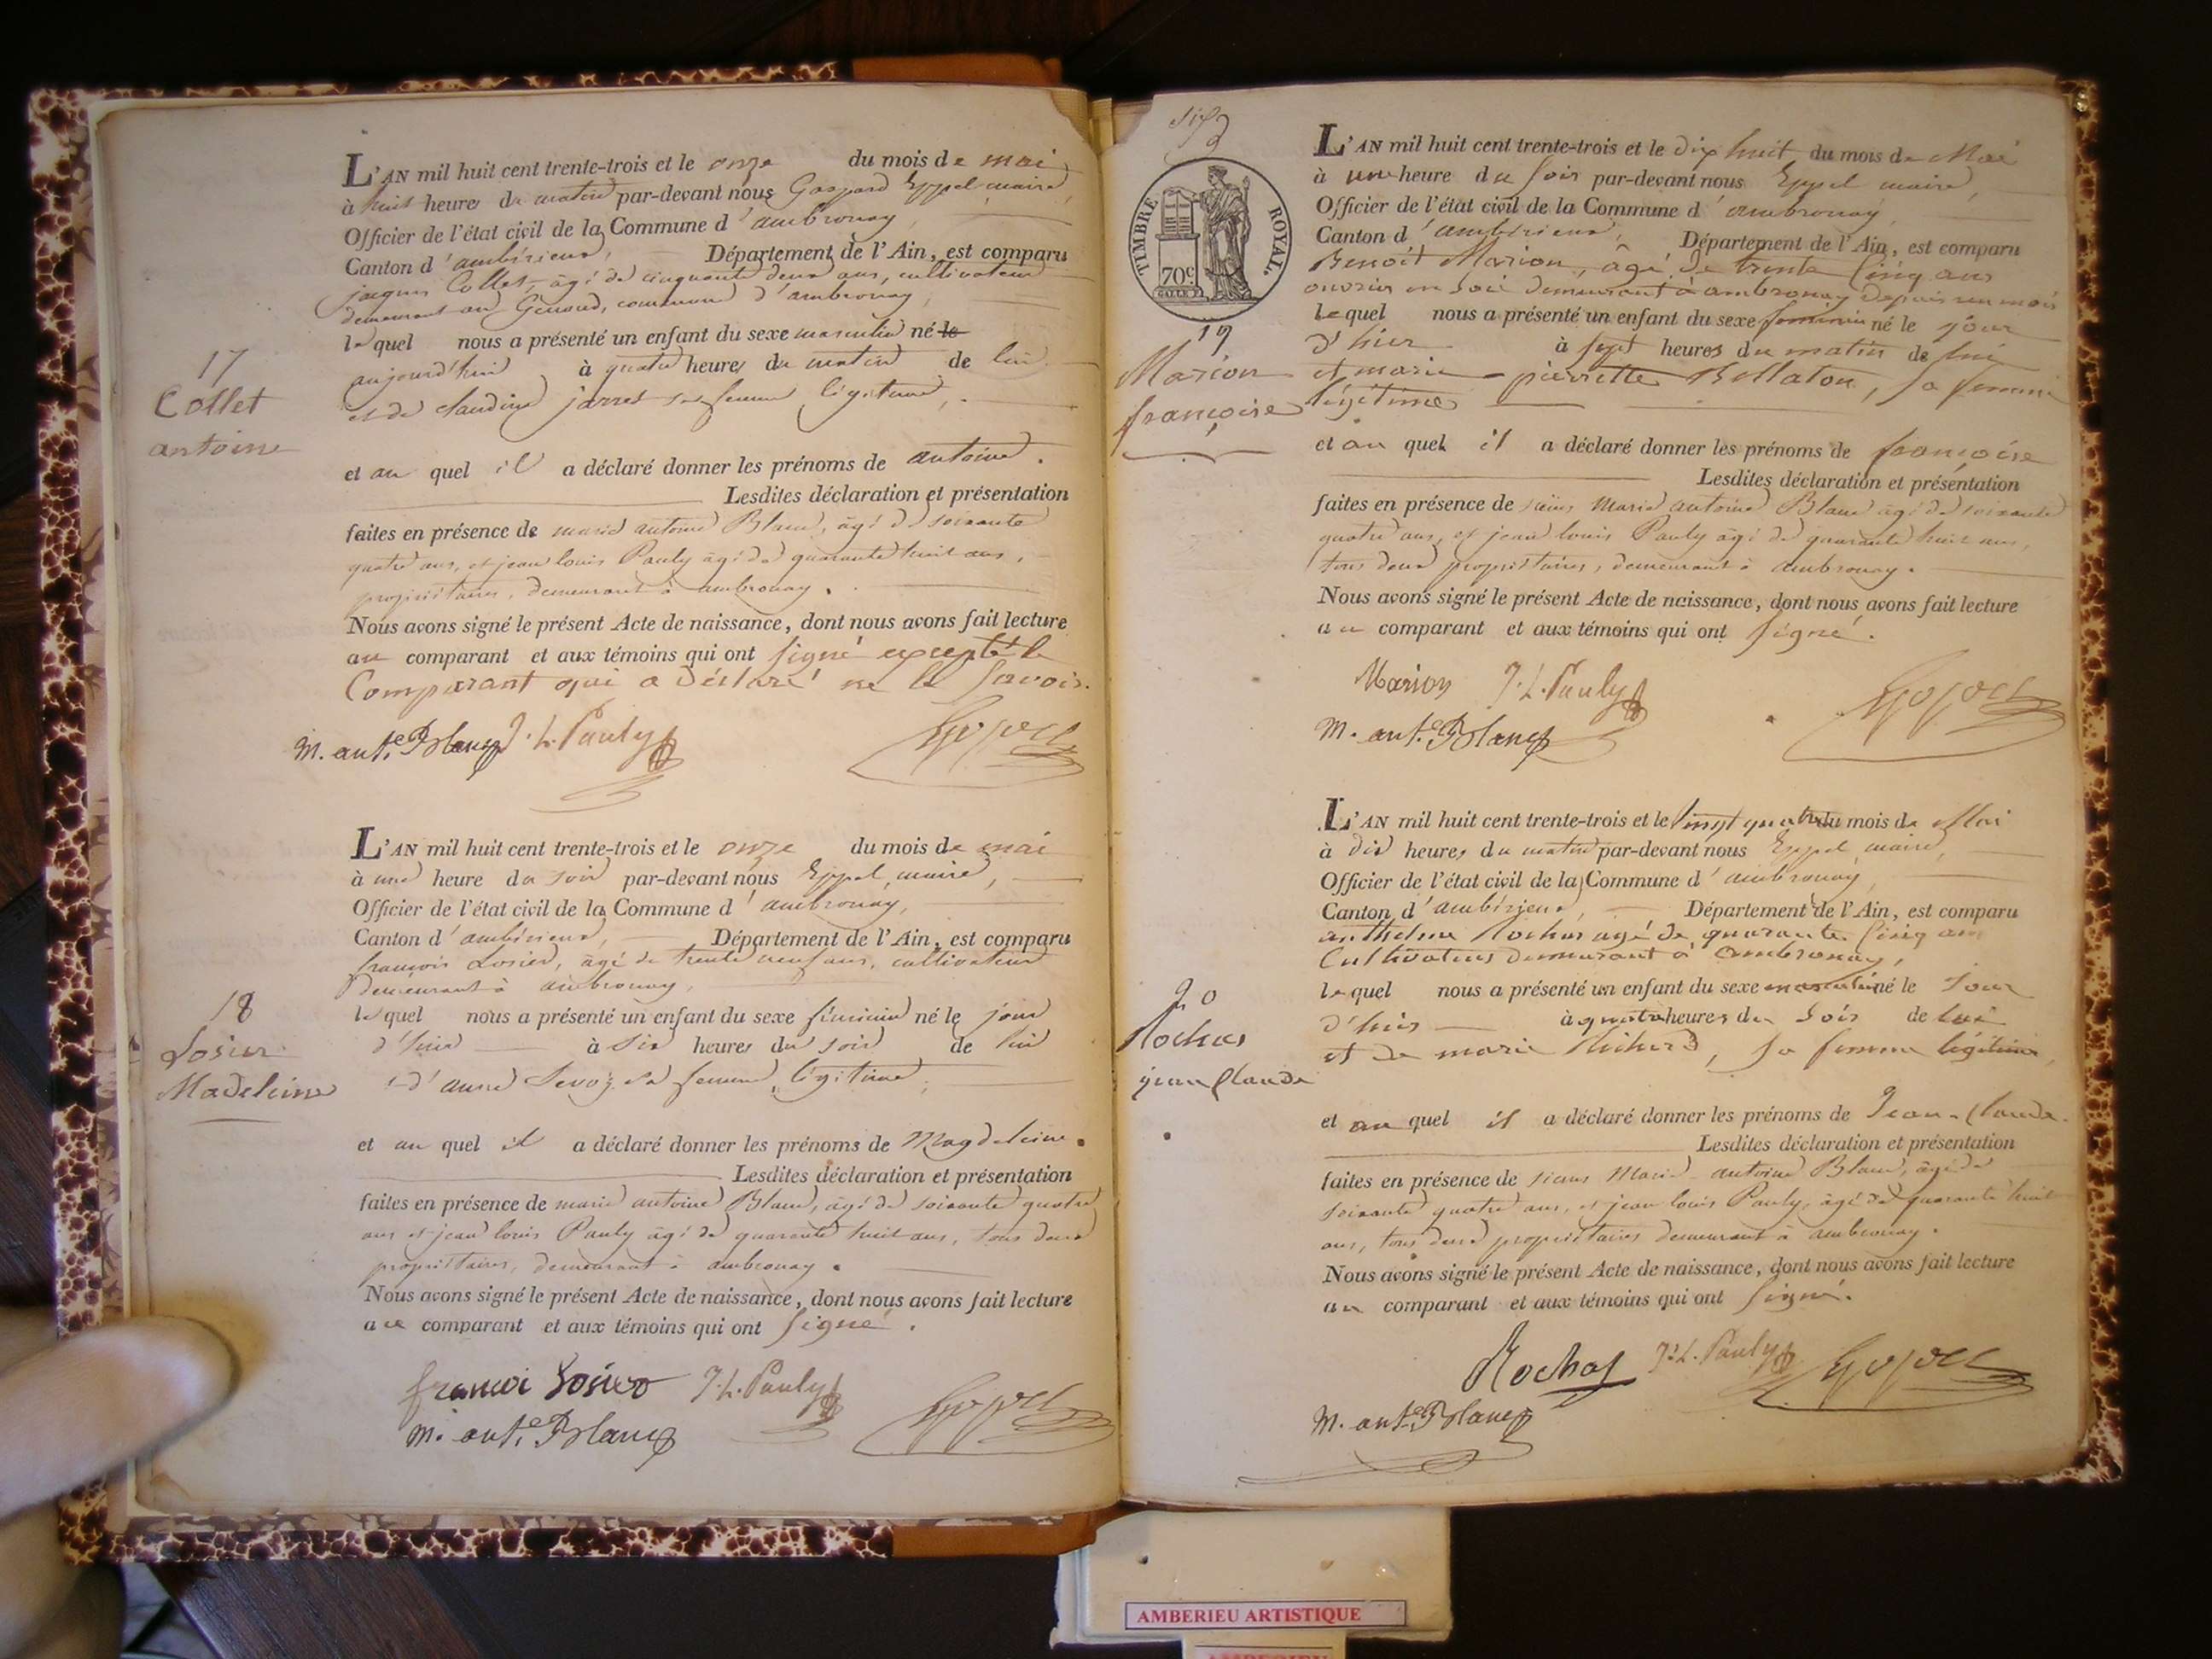 L'AN mil huit cent trente-trois et le onze du mois de mai
à huit heures du matin par-devant nous Gaspard Eppel, maire,
Officier de l'état civil de la Commune d'ambronay,
Canton d'ambérieux, Département de l'Ain, est comparu
jacques Collet, âgé de cinquante deux ans, cultivateur
demeurant au Genoud, commune d'ambronay,
lequel nous a présenté un enfant du sexe masculin né le
aujourd'hui à quatre heures du matin de lui
et de claudine jarret sa femme légitime,
17
Collet
antoine
et au quel il a déclaré donner les prénoms de antoine.
Lesdites déclaration et présentation
faites en présence de marie antoine Blanc, âgé de soixante
quatre ans, et jean louis Pauly âgé de quarante huit ans,
propriétaires, demeurant à ambronay.
Nous avons signé le présent Acte de naissance, dont nous avons fait lecture
au comparant et aux témoins qui ont signé excepté le
Comparant qui a déclaré ne le savoir.
M. ant.e Blanc J. L. Pauly Eppel
L'AN mil huit cent trente-trois et le onze du mois de mai
à une heure du soir par-devant nous Eppel, maire,
Officier de l'état civil de la Commune d'ambronay,
Canton d'ambérieux, Département de l'Ain, est comparu
françois Losier, âgé de trente neuf ans, cultivateur
demeurant à ambronay,
lequel nous a présenté un enfant du sexe féminin né le jour
d'hier à six heures du soir de lui
et d'anne Sevoz sa femme légitime,
18
Losier
Madeleine
et au quel il a déclaré donner les prénoms de Magdeleine.
Lesdites déclaration et présentation
faites en présence de marie antoine Blanc, âgé de soixante quatre
ans et jean louis Pauly âgé de quarante huit ans, tous deux
propriétaires, demeurant à ambronay.
Nous avons signé le présent Acte de naissance, dont nous avons fait lecture
au comparant et aux témoins qui ont signé.
J. L. Pauly
M. ant.e Blanc Eppel
TIMBRE ROYAL.
70c
L'AN mil huit cent trente-trois et le dix huit du mois de Mai
à une heure du soir par-devant nous Eppel maire,
Officier de l'état civil de la Commune d'ambronay,
Canton d'ambérieux, Département de l'Ain, est comparu
Benoit Marion, âgé de trente cinq ans
ouvrier en soie demeurant à ambronay depuis un mois
lequel nous a présenté un enfant du sexe feminin né le jour
d'hier à sept heures du matin de lui
et marie-pierrette Bellaton, sa femme
légitime
19
Marion
françoise
et au quel il a déclaré donner les prénoms de françoise
Lesdites déclaration et présentation
faites en présence de sieurs Marie antoine Blanc âgé de soixante
quatre ans, et jean louis Pauly âgé de quarante huit ans,
tous deux propriétaires, demeurant à ambronay.
Nous avons signé le présent Acte de naissance, dont nous avons fait lecture
au comparant et aux témoins qui ont signé.
Marion J. L. Pauly
M. ant.e Blanc Eppel
L'AN mil huit cent trente-trois et le vingt quatre du mois de Mai
à dix heures du matin par-devant nous Eppel, maire,
Officier de l'état civil de la Commune d'ambronay,
Canton d'ambérieux, Département de l'Ain, est comparu
anthelme Rochas agé de quarante cinq ans
Cultivateur demeurant à ambronay,
lequel nous a présenté un enfant du sexe masculin né le jour
d'hier à quatre heures du soir de lui
et de marie Richerd, sa femme légitime,
20
Rochas
jean Claude
et au quel il a déclaré donner les prénoms de Jean-Claude.
Lesdites déclaration et présentation
faites en présence de sieurs Marie antoine Blanc, âgé de
soixante quatre ans, et jean louis Pauly, âgé de quarante huit
ans, tous deux propriétaires demeurant à ambronay.
Nous avons signé le présent Acte de naissance, dont nous avons fait lecture
au comparant et aux témoins qui ont signé.
Rochas J. L. Pauly Eppel
M. ant.e Blanc
AMBERIEU ARTISTIQUE